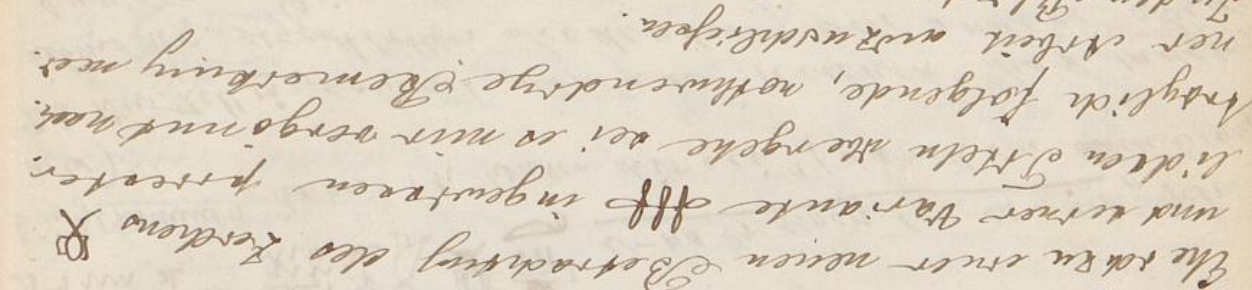 Ehe ich zu einer neuen Betrachtung des Zeichens
und seiner Variante in gewissen priester-
lichen Titeln übergehe sei es mir vergönnt nach-
träglich folgende, nothwendige Bemerkung mei-
ner Arbeit anzuschließen.
In den